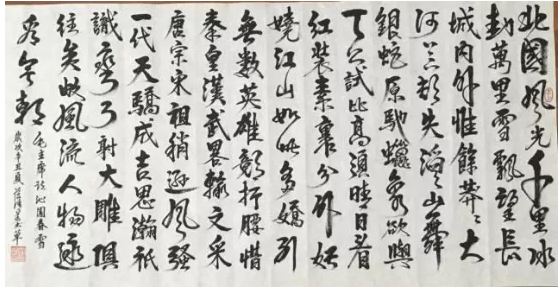 北國風光千里冰
封萬里雪飄望長
城內外惟餘莽〻大
河上下頓失滔〻山舞
銀蛇原馳蠟象欲與
天公試比高須晴日看
紅裝素裹分外妖
嬈江山如此多嬌引
無數英雄競折腰惜
秦皇漢武畧輸文采
唐宗宋祖稍遜風騷
一代天驕成吉思瀚祇
識彎弓射大雕俱
往矣數風流人物還
看今朝
毛主席詞沁園春雪
歲次辛丑夏